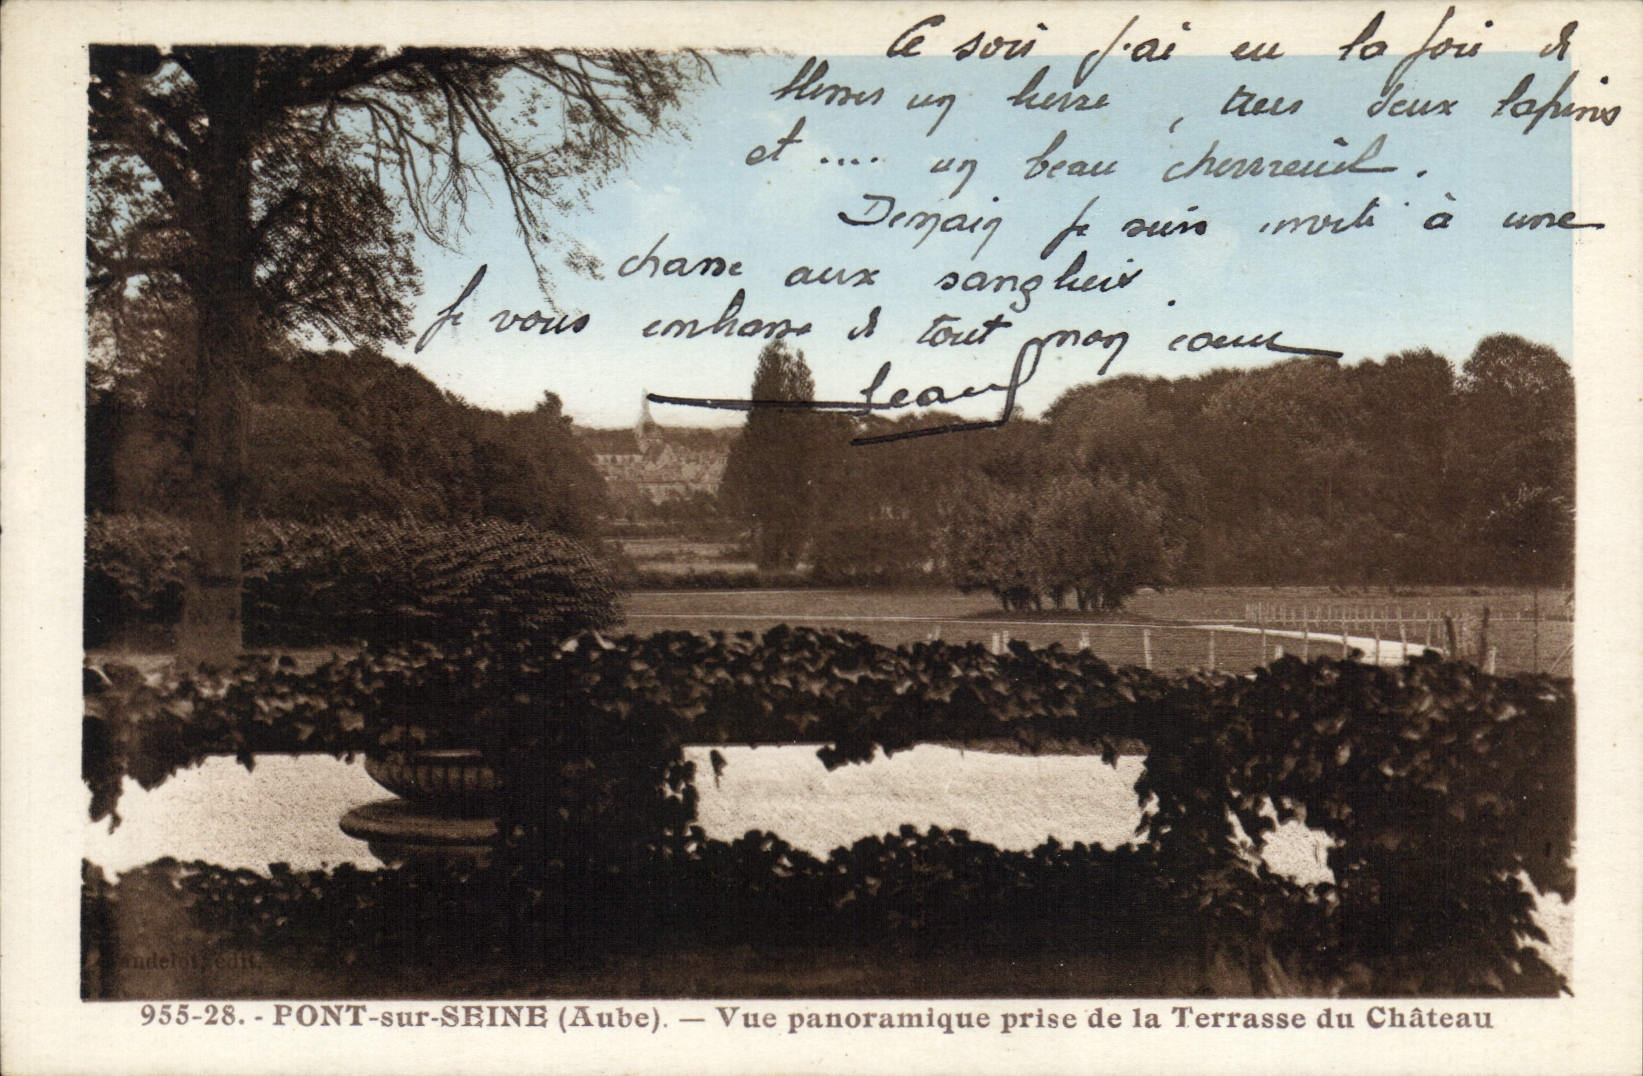 Ce soir j'ai eu la joie de
blesser un lievre, tuer deux lapins
et .... un beau chevreuil.
Demain je suis invité à une
chasse aux sangliers
Je vous embrasse de tout mon cœur
Jean
andelot, édit.
955-28. - PONT-sur-SEINE (Aube). — Vue panoramique prise de la Terrasse du Château